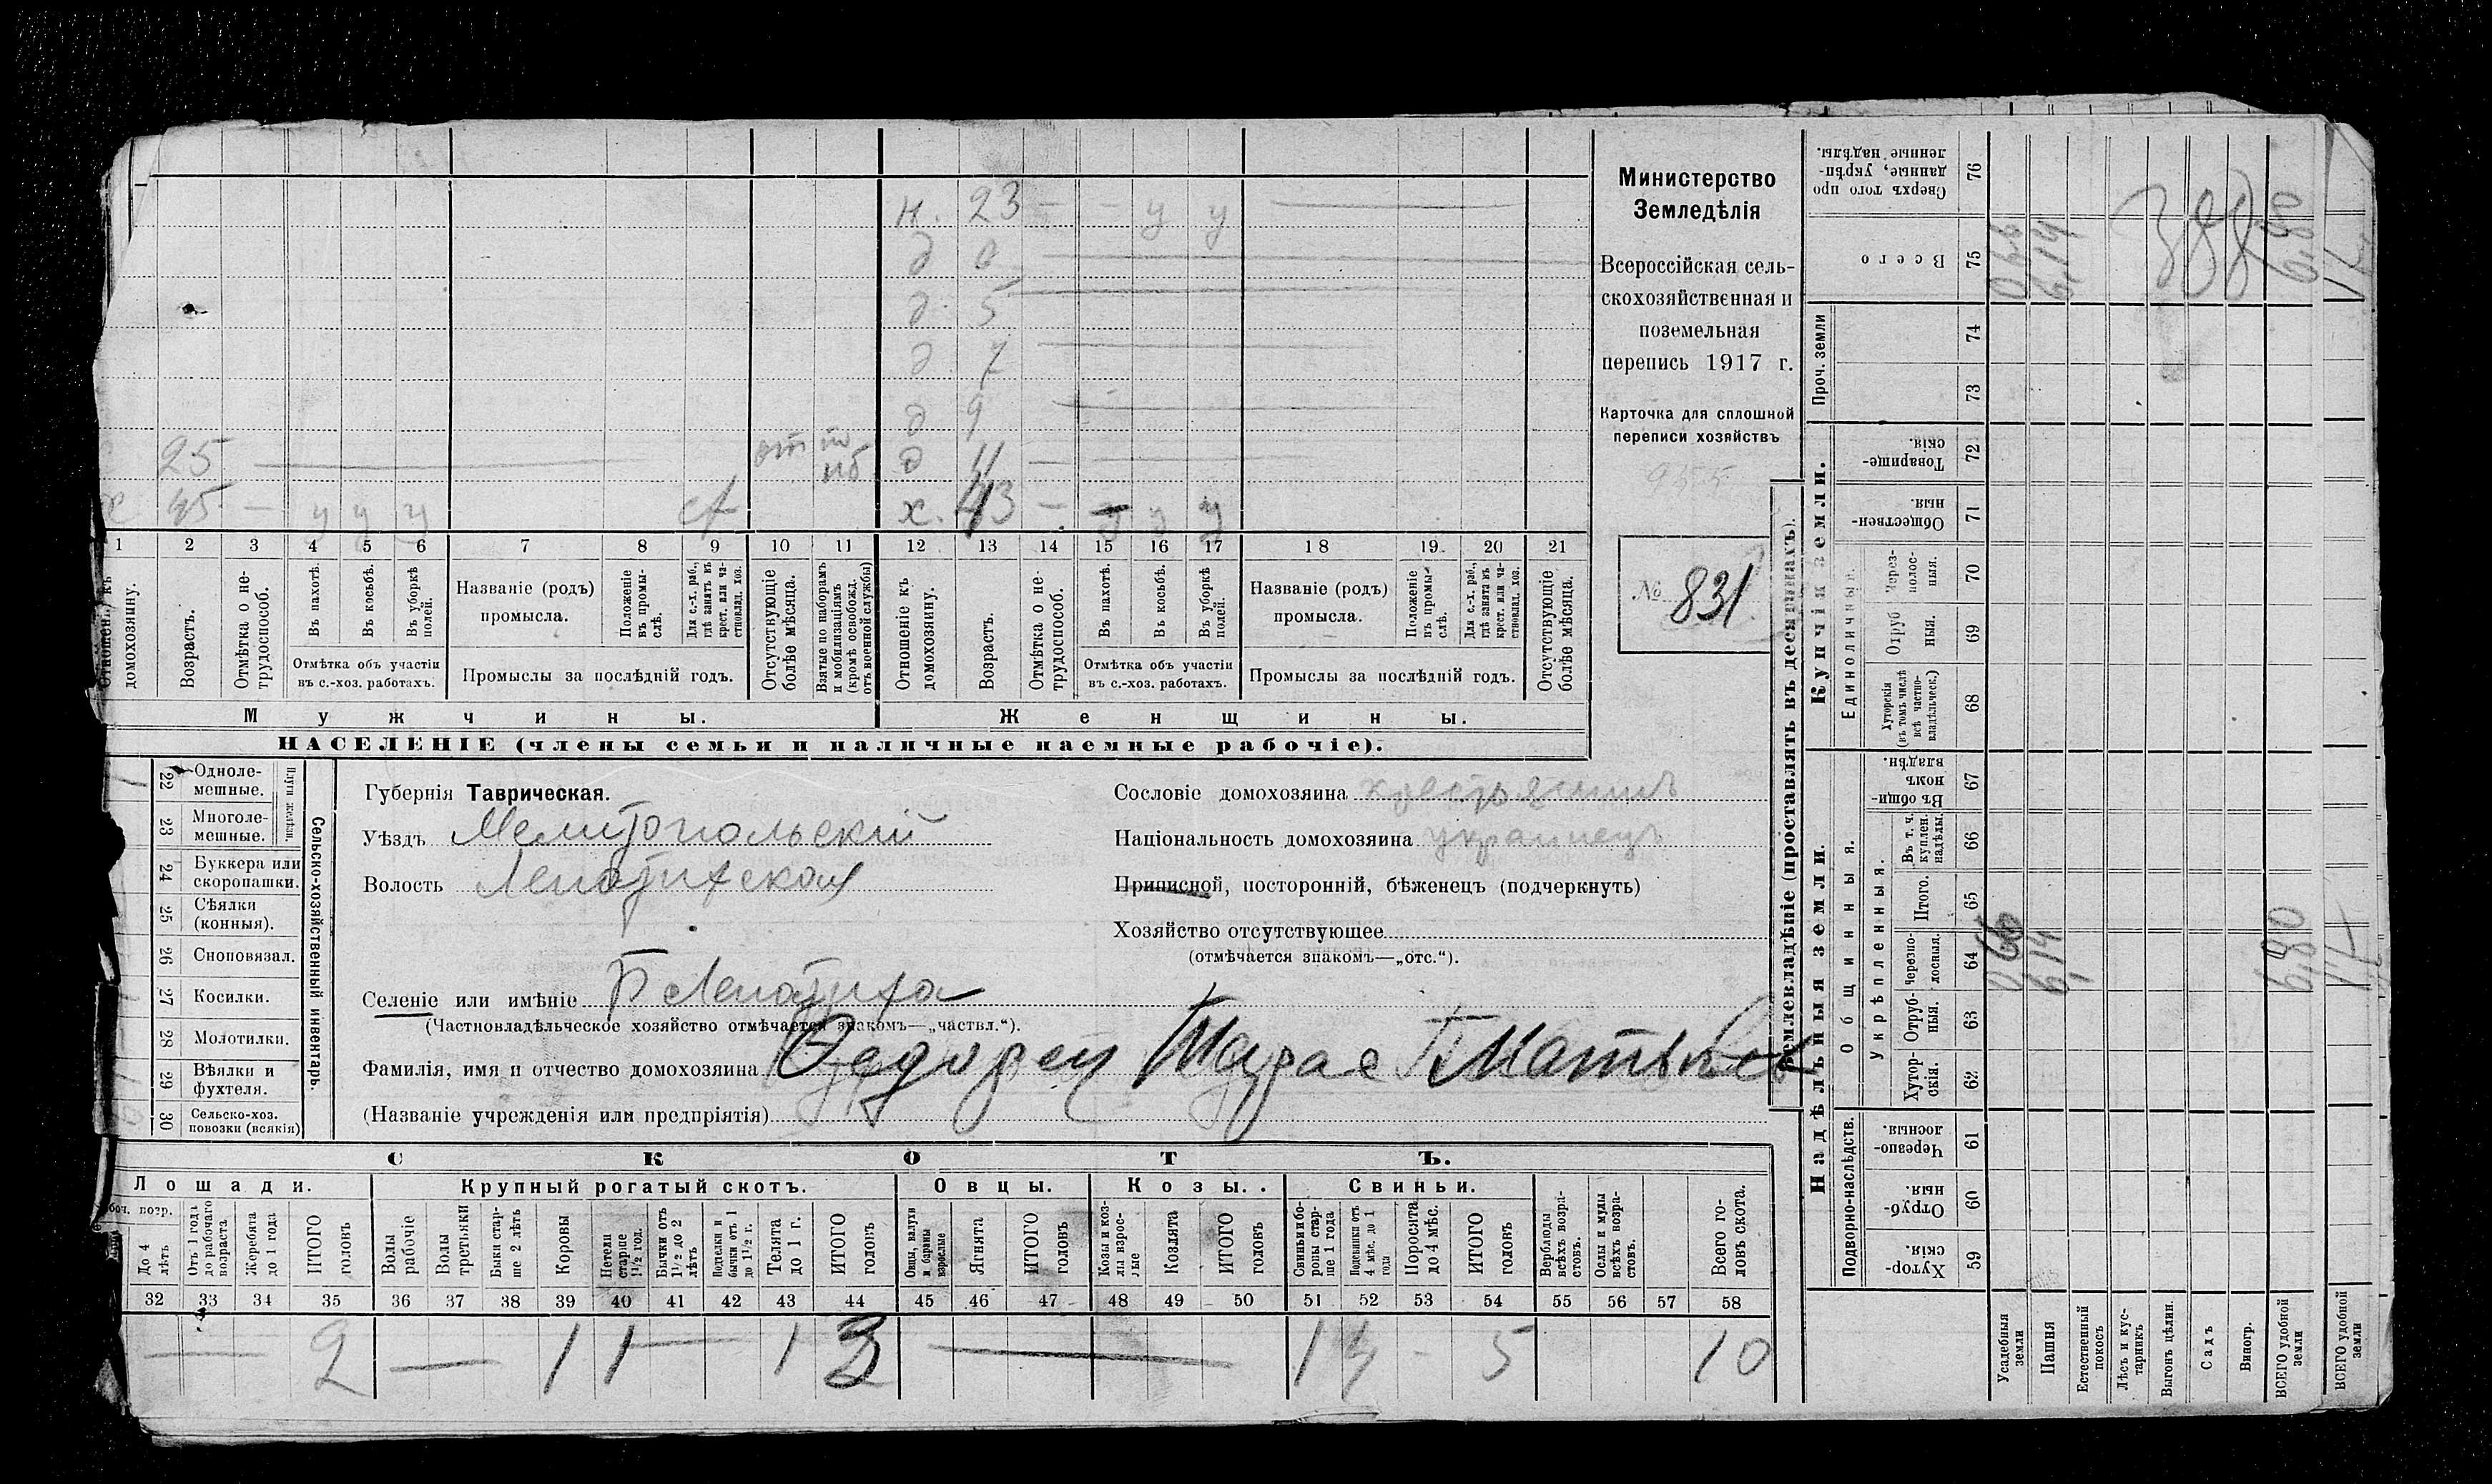 Министерство
Земледѣлія
Всероссійская сель-
скохозяйственная и
поземельная
перепись 1917 г.
Карточка для сплошной
переписи хозяйствъ
№ 831
н. 23 — — у у
д 5
д 7
д 9
25
д 11
45 — у у у
х. 43 — у у
1 2 3 4 5 6 7 8 9 10 11 12 13 14 15 16 17 18 19 20 21
домохозяину.
Возрастъ.
Отмѣтка о не-
трудоспособ.
Въ пахотѣ.
Въ косьбѣ.
Въ уборкѣ
полей.
Отмѣтка объ участіи
въ с.-хоз. работахъ.
Названіе (родъ)
промысла.
Положеніе
въ промы-
слѣ.
Для с.-х. раб.,
гдѣ занятъ въ
крест. или ча-
стновлад. хоз.
Промыслы за послѣдній годъ.
Отсутствующіе
болѣе мѣсяца.
Взятые по наборамъ
и мобилизаціямъ
(кромѣ освобожд.
отъ военной службы)
Отношеніе къ
домохозяину.
Возрастъ.
Отмѣтка о не-
трудоспособ.
Въ пахотѣ.
Въ косьбѣ.
Въ уборкѣ
полей.
Отмѣтка объ участіи
въ с.-хоз. работахъ.
Названіе (родъ)
промысла.
Положеніе
въ промы-
слѣ.
Для с.-х. раб.,
гдѣ занятъ въ
крест. или ча-
стновлад. хоз.
Промыслы за послѣдній годъ.
Отсутствующіе
болѣе мѣсяца.
Мужчины.
Женщины.
НАСЕЛЕНІЕ (члены семьи и наличные наемные рабочіе).
22 Одноле-
мешные.
23 Многоле-
мешные.
24 Буккера или
скоропашки.
25 Сѣялки
(конныя).
26 Сноповязал.
27 Косилки.
28 Молотилки.
29 Вѣялки и
фухтеля.
30 Сельско-хоз.
повозки (всякія)
Сельско-хозяйственный инвентарь.
Губернія Таврическая.
Уѣздъ Мелитопольскій
Волость Лепатихская
Селеніе или имѣніе Б Лепатиха
(Частновладѣльческое хозяйство отмѣчается знакомъ—„частвл.“).
Фамилія, имя и отчество домохозяина
(Названіе учрежденія или предпріятія)
Сословіе домохозяина крестьянинъ
Національность домохозяина украинецъ
Приписной, посторонній, бѣженецъ (подчеркнуть)
Хозяйство отсутствующее
(отмѣчается знакомъ—„отс.“).
СКОТЪ.
Лошади.
Крупный рогатый скотъ.
Овцы.
Козы.
Свиньи.
До 4
лѣтъ
Отъ 1 года
до рабочаго
возраста
Жеребята
до 1 года
ИТОГО
головъ
Волы
рабочіе
Волы
третьяки
Быки стар-
ше 2 лѣтъ
Коровы
Нетели
старше
1½ год.
Бычки отъ
1½ до 2
лѣтъ
Подтелки и
бычки отъ 1
до 1½ г.
Телята
до 1 г.
ИТОГО
головъ
Овцы, валухи
и бараны
взрослые
Ягнята
ИТОГО
головъ
Козы и коз-
лы взрос-
лые
Козлята
ИТОГО
головъ
Свиньи и бо-
ровы стар-
ше 1 года
Подсвинки отъ
4 мѣс. до 1
года
Поросята
до 4 мѣс.
ИТОГО
головъ
Верблюды
всѣхъ возра-
стовъ.
Ослы и мулы
всѣхъ возра-
стовъ.
Всего го-
ловъ скота.
32 33 34 35 36 37 38 39 40 41 42 43 44 45 46 47 48 49 50 51 52 53 54 55 56 57 58
2 — 1 1 — 1 3 — 1 4 - 5 10
Землевладѣніе (проставлять въ десятинахъ).
Надѣльныя земли.
Купчія земли.
Проч. земли
Подворно-наслѣдств.
Общинныя.
Укрѣпленныя.
Единоличныя.
Хутор-
скія.
59
Отруб-
ныя.
60
Черезпо-
лосныя.
61
Хутор-
скія.
62
Отруб-
ныя.
63
Черезпо-
лосныя.
64
Итого.
65
Въ т. ч.
куплен.
надѣлы.
66
Въ общин-
номъ
владѣн.
67
Хуторскія
(въ томъ числѣ
всѣ частно-
владѣльческ.)
68
Отруб
ныя.
69
Через-
полос-
ныя.
70
Обществен-
ныя.
71
Товарище-
скія.
72
73
74
Всего
75
Сверхъ того про
данные, укрѣп-
ленные надѣлы.
76
Усадебныя
земли
Пашня
Естественный
покосъ
Лѣсъ и кус-
тарникъ
Выгонъ цѣлин.
Садъ
Виногр.
ВСЕГО удобной
земли
ВСЕГО удобной
земли
0,66
6,14
6,80
0,66
6,14
388
6,80